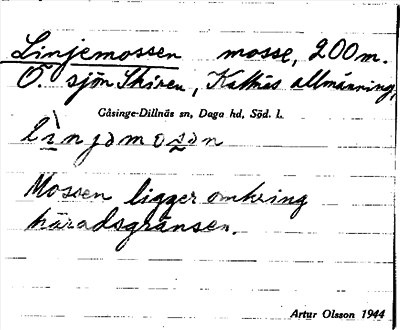 Linjemossen mosse, 200 m.
Ö. sjön Skiren, Kattnäs allmänning,
Gåsinge-Dillnäs sn, Daga hd, Söd. l.
Mossen ligger omkring
häradsgränsen.
Artur Olsson 1944